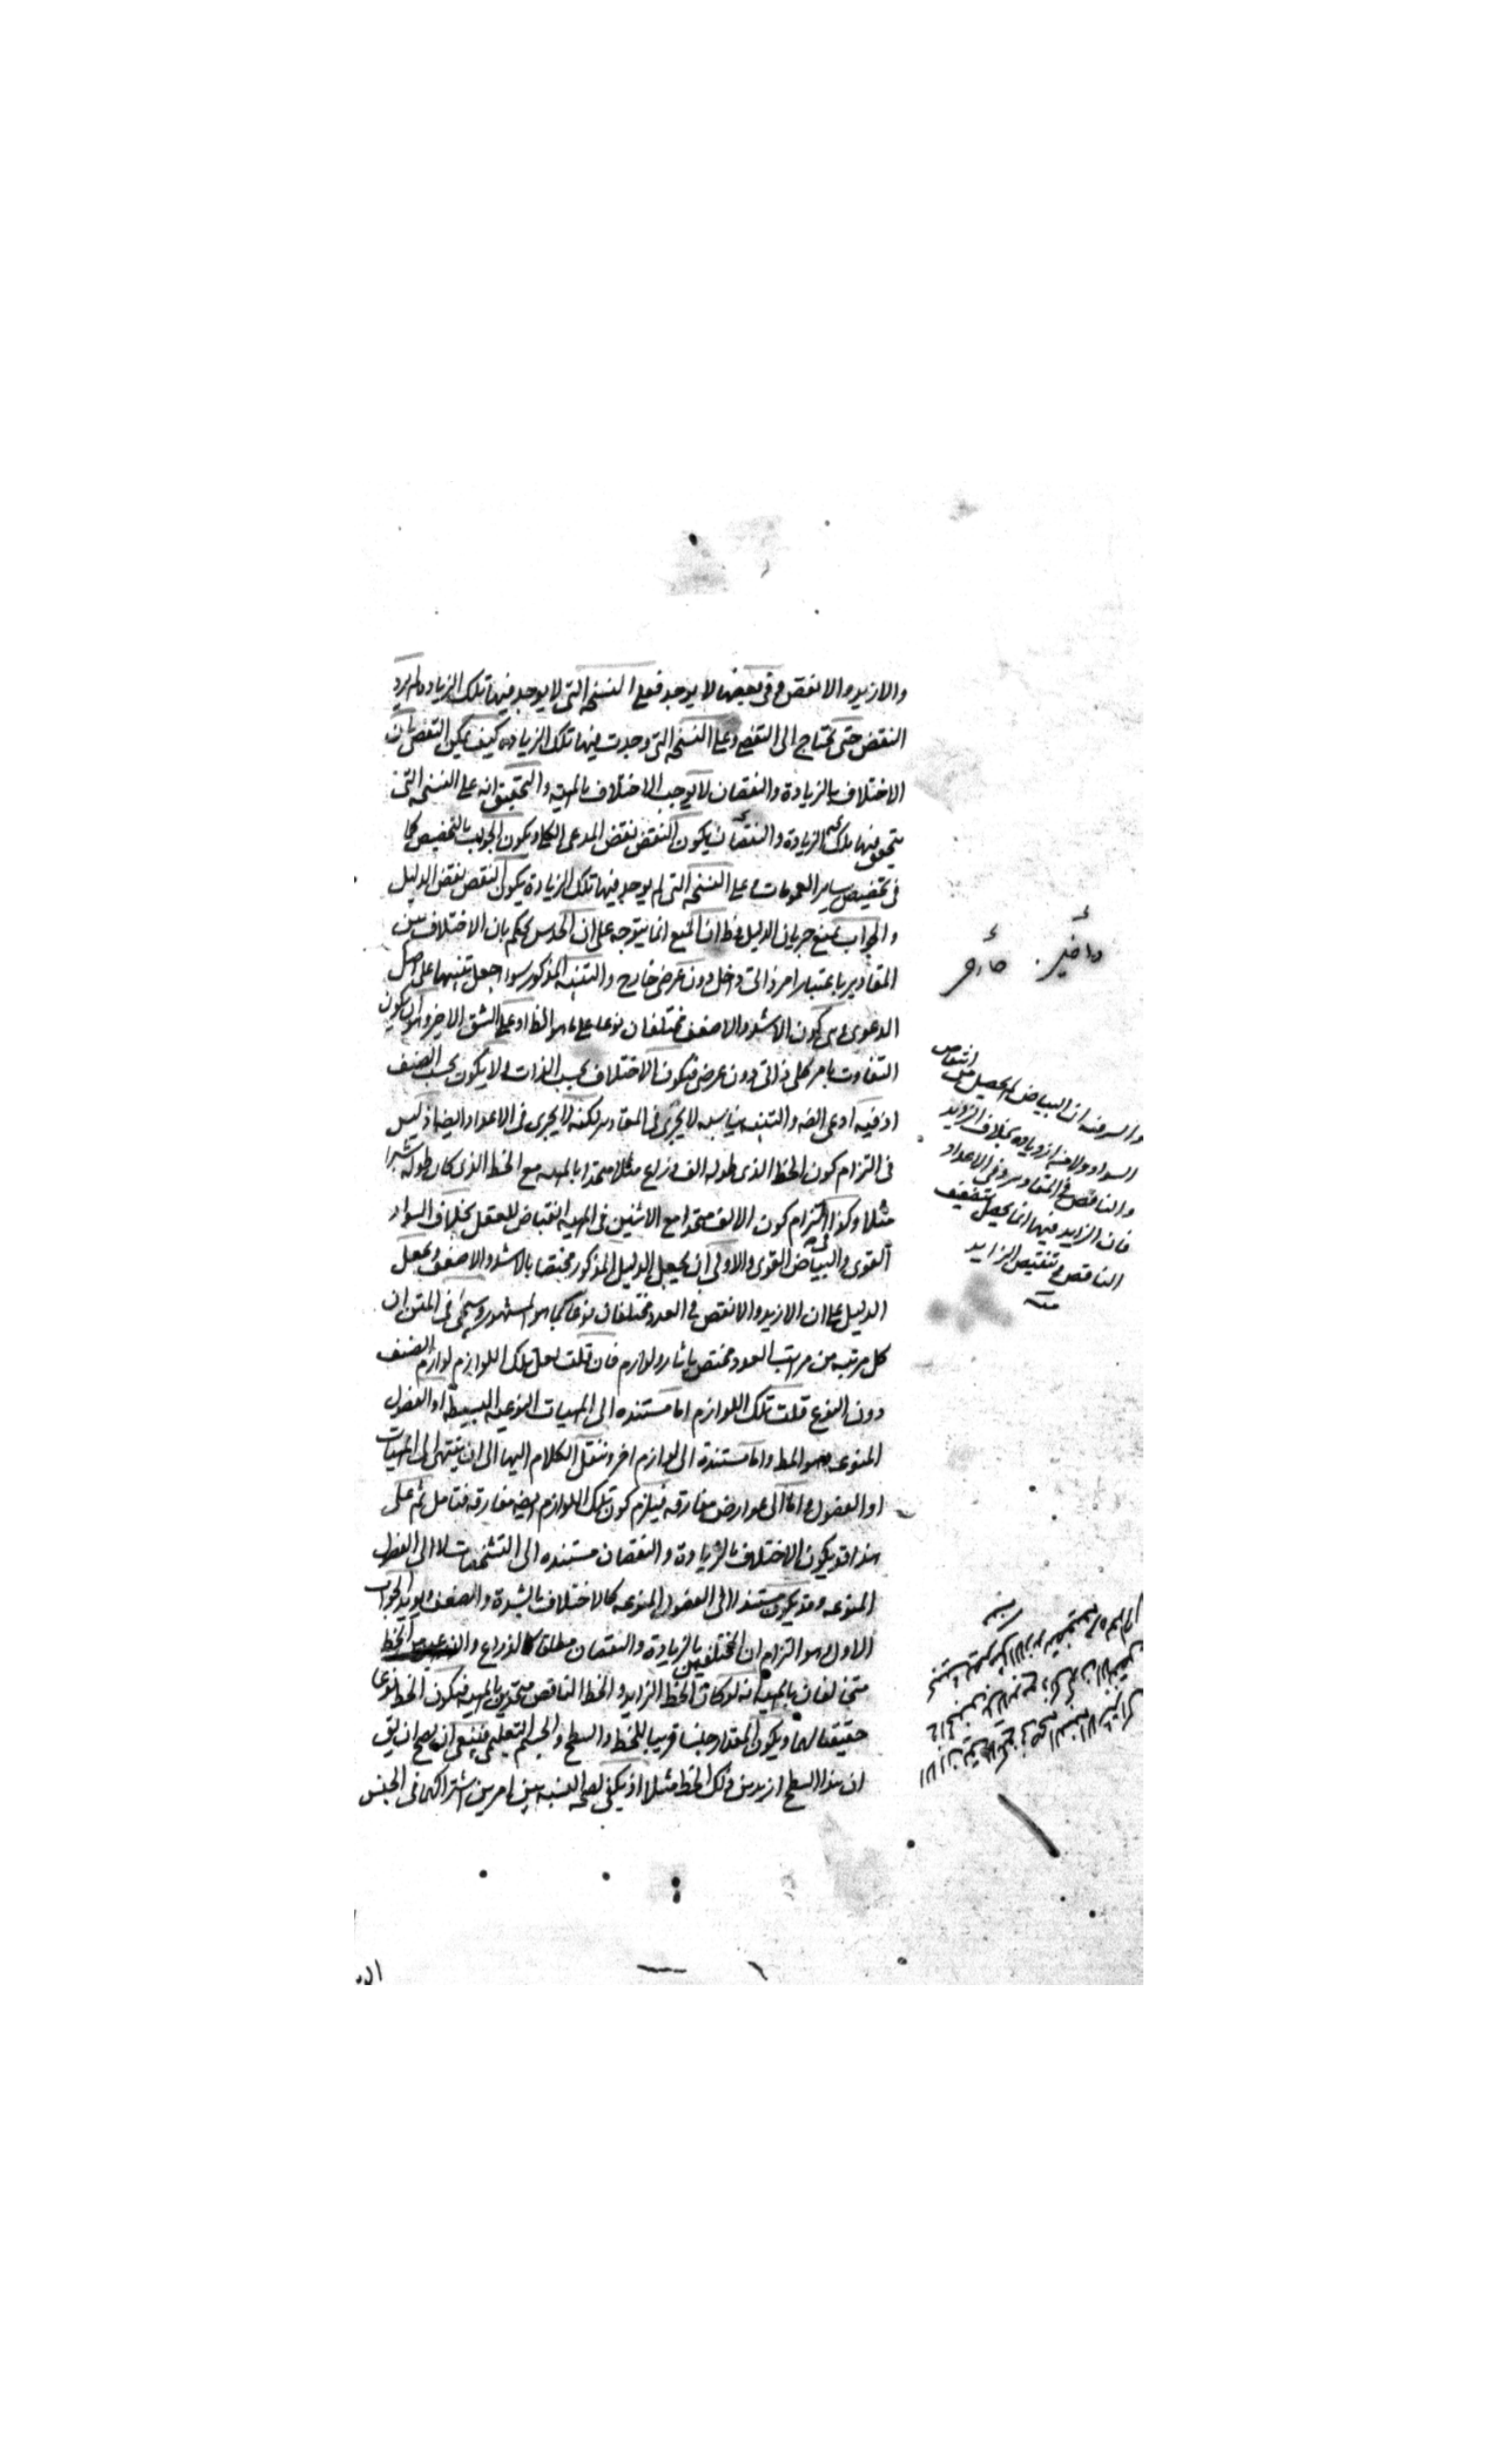 والازيد والانقص وفي بعضها لا يوجد فعلى النسخه التى لا يوجد فيها تلك الزياده لم يرد
النقض حتى يحتاج الى التفصي وعلى النسخه التى وجدت فيها تلك الزياده كيف يمكن التفصي بان
الاختلاف بالزيادة والنقصان لا يوجب الاختلاف بالمهيه والتحقيق انه على النسخه التى
يتحقق فيها تلك الزيادة والنقصان يكون النقض نقض المدعى الكلى ويكون الجواب بالتخصيص كما
فى تخصيص ساير العمومات وعلى النسخه التى لم يوجد فيها تلك الزيادة يكون النقض نقض الدليل
والجواب بمنع جريان الدليل فظ ان المنع انما يتوجه على ان الحدس يحكم بان الاختلاف بين
المقادير باعتبار امر ذاتى داخل دون عرضى خارج والتنبيه المذكور سواء جعل تنبيها على اصل
الدعوى وهى كون الاشد والاضعف مختلفان نوعا على ما هو الظ او على الشق الاخير وهو ان يكون
التفاوت بامر كلى ذاتى دون عرضى فيكون الاختلاف بحسب الذات ولا يكون بحسب الصنف
اذ فيه ادعى الضه والتنبيه يناسبه لا يجرى فى المقادير لكنه لا يجرى فى الاعداد ايضا اذ ليس
فى التزام كون الخط الذى طوله الف ذراع مثلا متحدا بالمهيه مع الخط الذى كان طوله شبرا
مثلا وكذا التزام كون الالف متحدا مع الاثنين فى المهيه انقباض للعقل بخلاف السواد
القوى والبياض القوى والاولى ان يجعل الدليل المذكور مختصا بالاشد والاضعف ويجعل
الدليل على ان الازيد والانقص فى العدد مختلفان نوعا كما هو المشهور وسيجئ فى المتن ان
كل مرتبه من مراتب العدد مختص باثار ولوازم فان قلت لعل تلك اللوازم لوازم الصنف
دون النوع قلت تلك اللوازم اما مستنده الى المهيات النوعيه البسيطه او الفصول
المنوعه وهو المط واما مستندة الى لوازم اخر وننقل الكلام اليها الى ان ينتهى الى المهيات
او الفصول واما الى عوارض مفارقه فيلزم كون تلك اللوازم ايضه مفارقه فتامل ثم على
هذا قد يكون الاختلاف بالزيادة والنقصان مستنده الى التشخصات لا الى الفصول
المنوعه وقد يكون مستندا الى الفصول المنوعه كالاختلاف بالشدة والضعف ويويد الجواب
الاول وهو التزام ان المختلفين بالزيادة والنقصان مطلقا كالذراع والخط
متخالفان بالمهيه انه لو كان الخط الزايد والخط الناقص متحدين بالمهيه فيكون الخط نوعا
حقيقيا لهما ويكون المقدار جنسا قريبا للخط والسطح والجسم التعليمى فينبغى ان يصح ان يق
ان هذا السطح ازيد من ذلك الخط مثلا اذ يكفى لصحه النسبه بين امرين اشتراكهما فى الجنس
داخلى . خارجى
والسر فيه ان البياض لا يحصل من انتقاص
السواد ولا من ازدياده بخلاف الزايد
والناقص فى المقادير وفى الاعداد
فان الزايد فيها انما يحصل بتضعيف
الناقص وتنقيص الزايد
منه